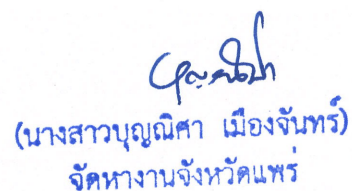 (นางสาวบุญณิศา เมืองจันทร์)
จัดหางานจังหวัดแพร่